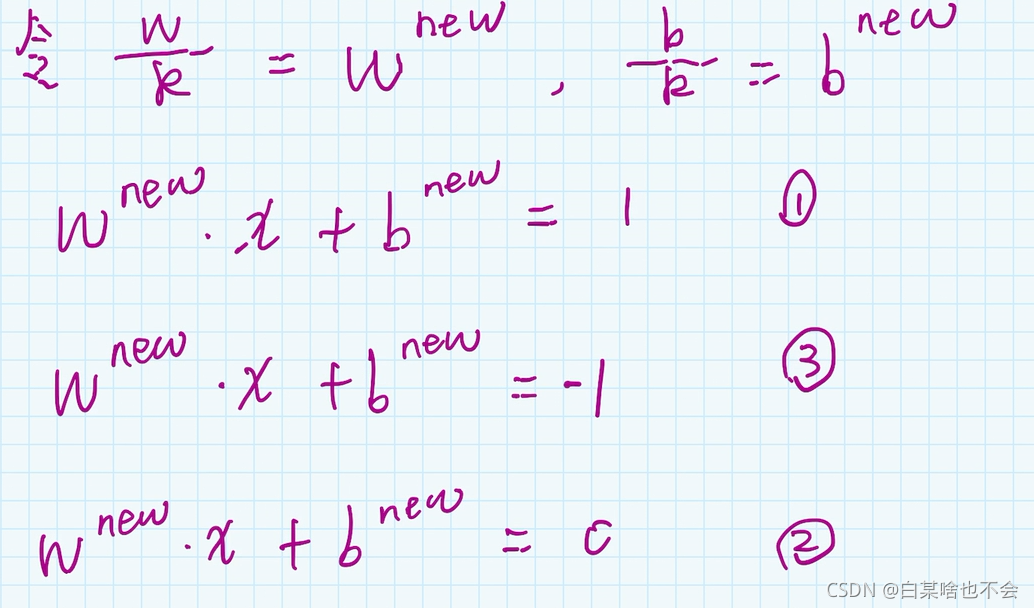 令 w/k = w^new , b/k = b^new
w^new · x + b^new = 1 ①
w^new · x + b^new = -1 ③
w^new · x + b^new = 0 ②
CSDN @白某啥也不会